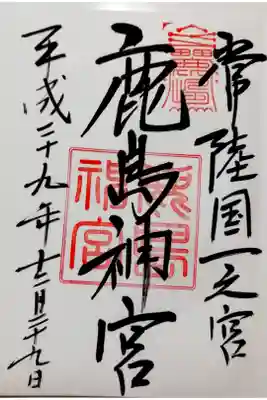 常陸国一之宮
鹿島神宮
平成二十九年十二月二十九日